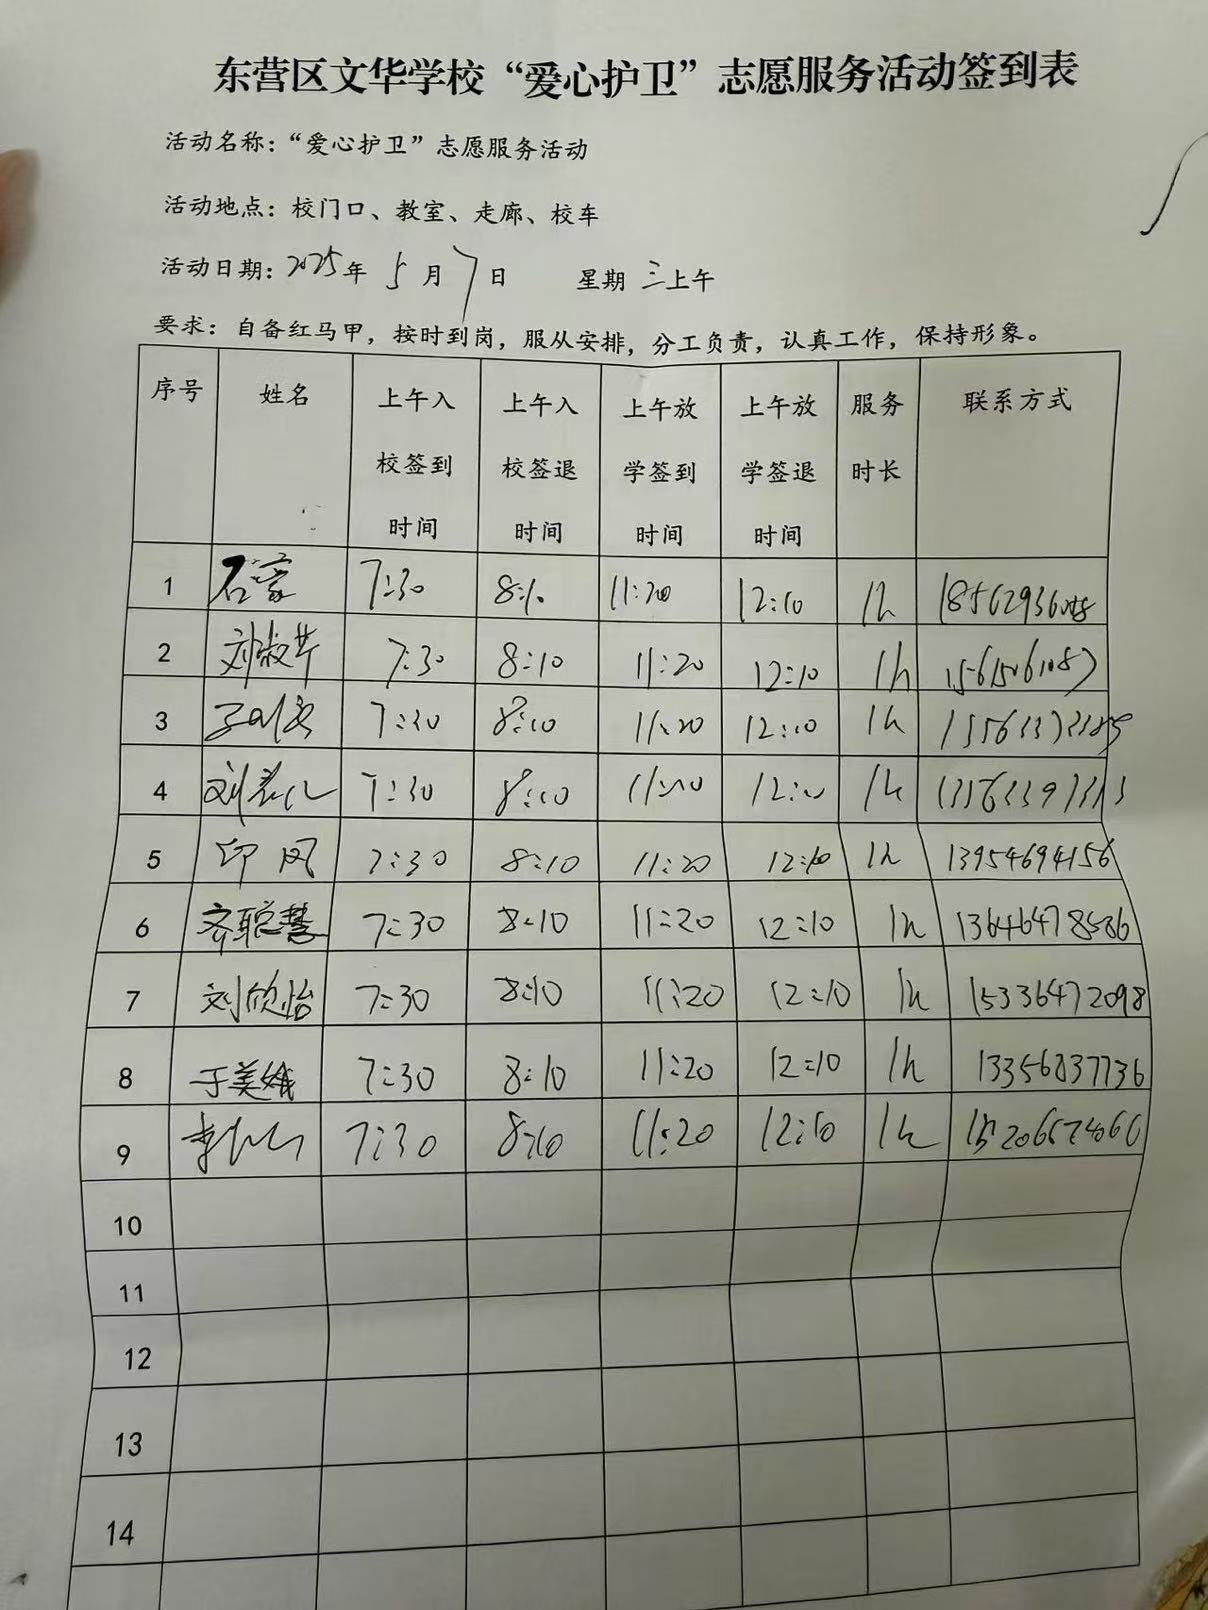 东营区文华学校“爱心护卫”志愿服务活动签到表
活动名称：“爱心护卫”志愿服务活动
活动地点：校门口、教室、走廊、校车
活动日期：2025年 5月 7日 星期 三上午
要求：自备红马甲，按时到岗，服从安排，分工负责，认真工作，保持形象。
序号 姓名 上午入校签到时间 上午入校签退时间 上午放学签到时间 上午放学签退时间 服务时长 联系方式
1 石蒙 7:30 8:10 11:20 12:10 1h
2 刘淑芹 7:30 8:10 11:20 12:10 1h
3 7:30 8:10 11:20 12:10 1h
4 7:30 8:10 11:20 12:10 1h
5 印凤 7:30 8:10 11:20 12:10 1h 13954694156
6 齐聪慧 7:30 8:10 11:20 12:10 1h 13646478586
7 刘欣怡 7:30 8:10 11:20 12:10 1h 15336472098
8 于美娥 7:30 8:10 11:20 12:10 1h 13356837736
9 7:30 8:10 11:20 12:10 1h
10
11
12
13
14